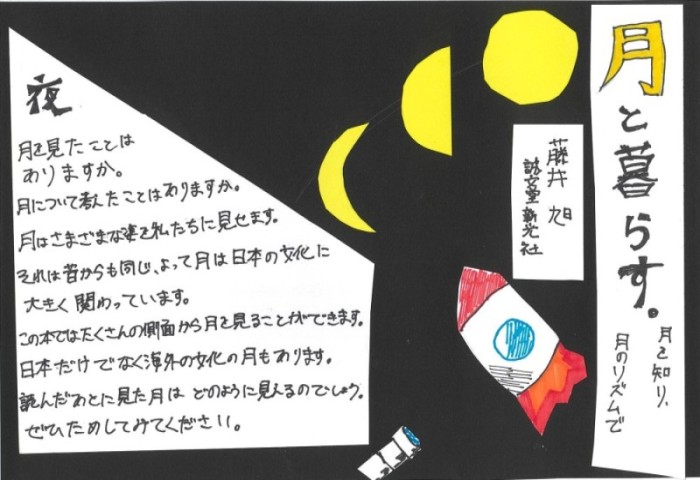 月と暮らす。
月を知り、
月のリズムで
藤井 旭
誠文堂新光社
夜
月を見たことは
ありますか。
月について考えたことはありますか。
月はさまざまな姿を私たちに見せます。
それは昔からも同じ、よって月は日本の文化に
大きく関わっています。
この本ではたくさんの側面から月を見ることができます。
日本だけでなく海外の文化の月もあります。
読んだあとに見た月は どのように見えるのでしょう。
ぜひためしてみてください。